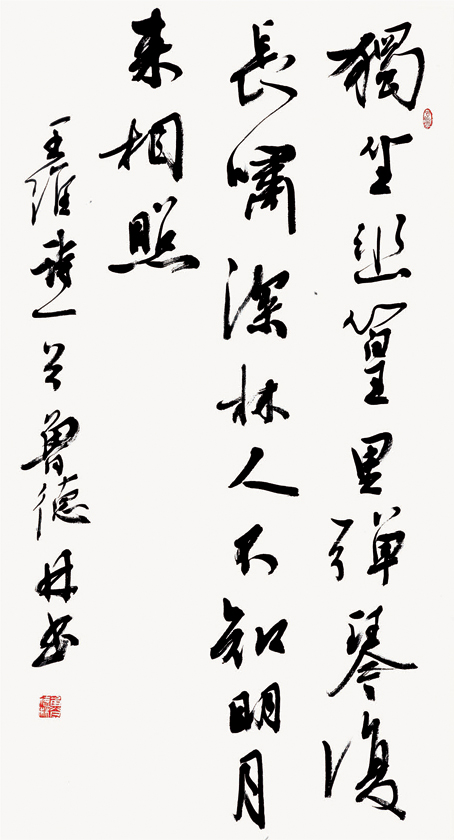 獨坐幽篁里弹琴復
長嘯深林人不知明月
来相照
王維詩一首魯德林書